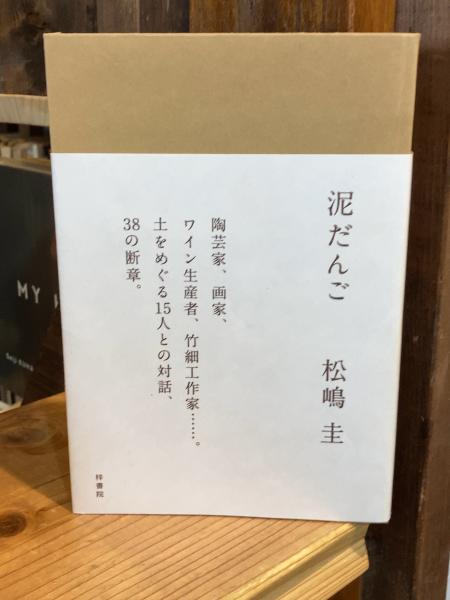 泥だんご
松嶋 圭
陶芸家、画家、
ワイン生産者、竹細工作家……。
土をめぐる15人との対話、
38の断章。
梓書院
MY